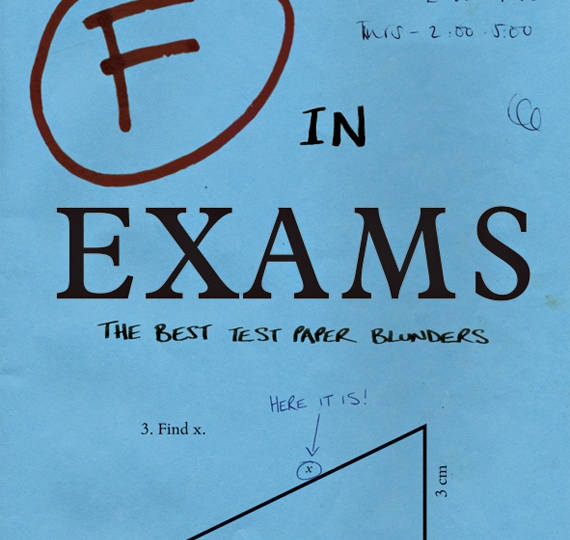 Thurs - 2:00 - 5:00
F
IN
EXAMS
THE BEST TEST PAPER BLUNDERS
HERE IT IS!
3. Find x.
x
3 cm